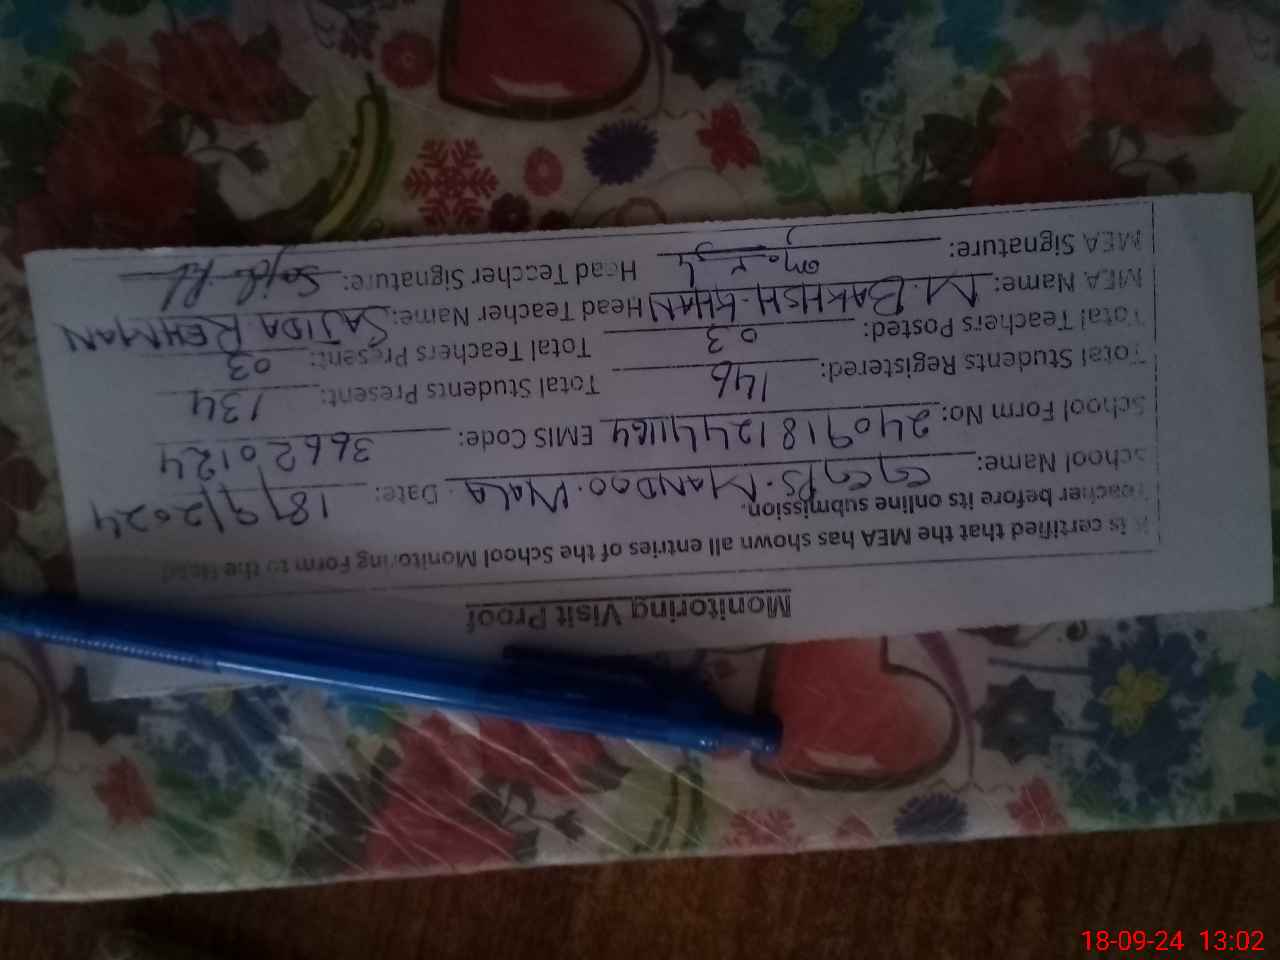 Monitoring Visit Proof
It is certified that the MEA has shown all entries of the School Monitoring Form to the Head
Teacher before its online submission.
School Name: GGPS. MANDOO. WALA. Date: 18/9/2024
School Form No: 24091812441164 EMIS Code: 36620124
Total Students Registered: 146 Total Students Present: 134
Total Teachers Posted: 03 Total Teachers Present: 03
MEA Name: M. BAKHSH. KHAN Head Teacher Name: SAJIDA REHMAN
MEA Signature: Head Teacher Signature:
18-09-24 13:02